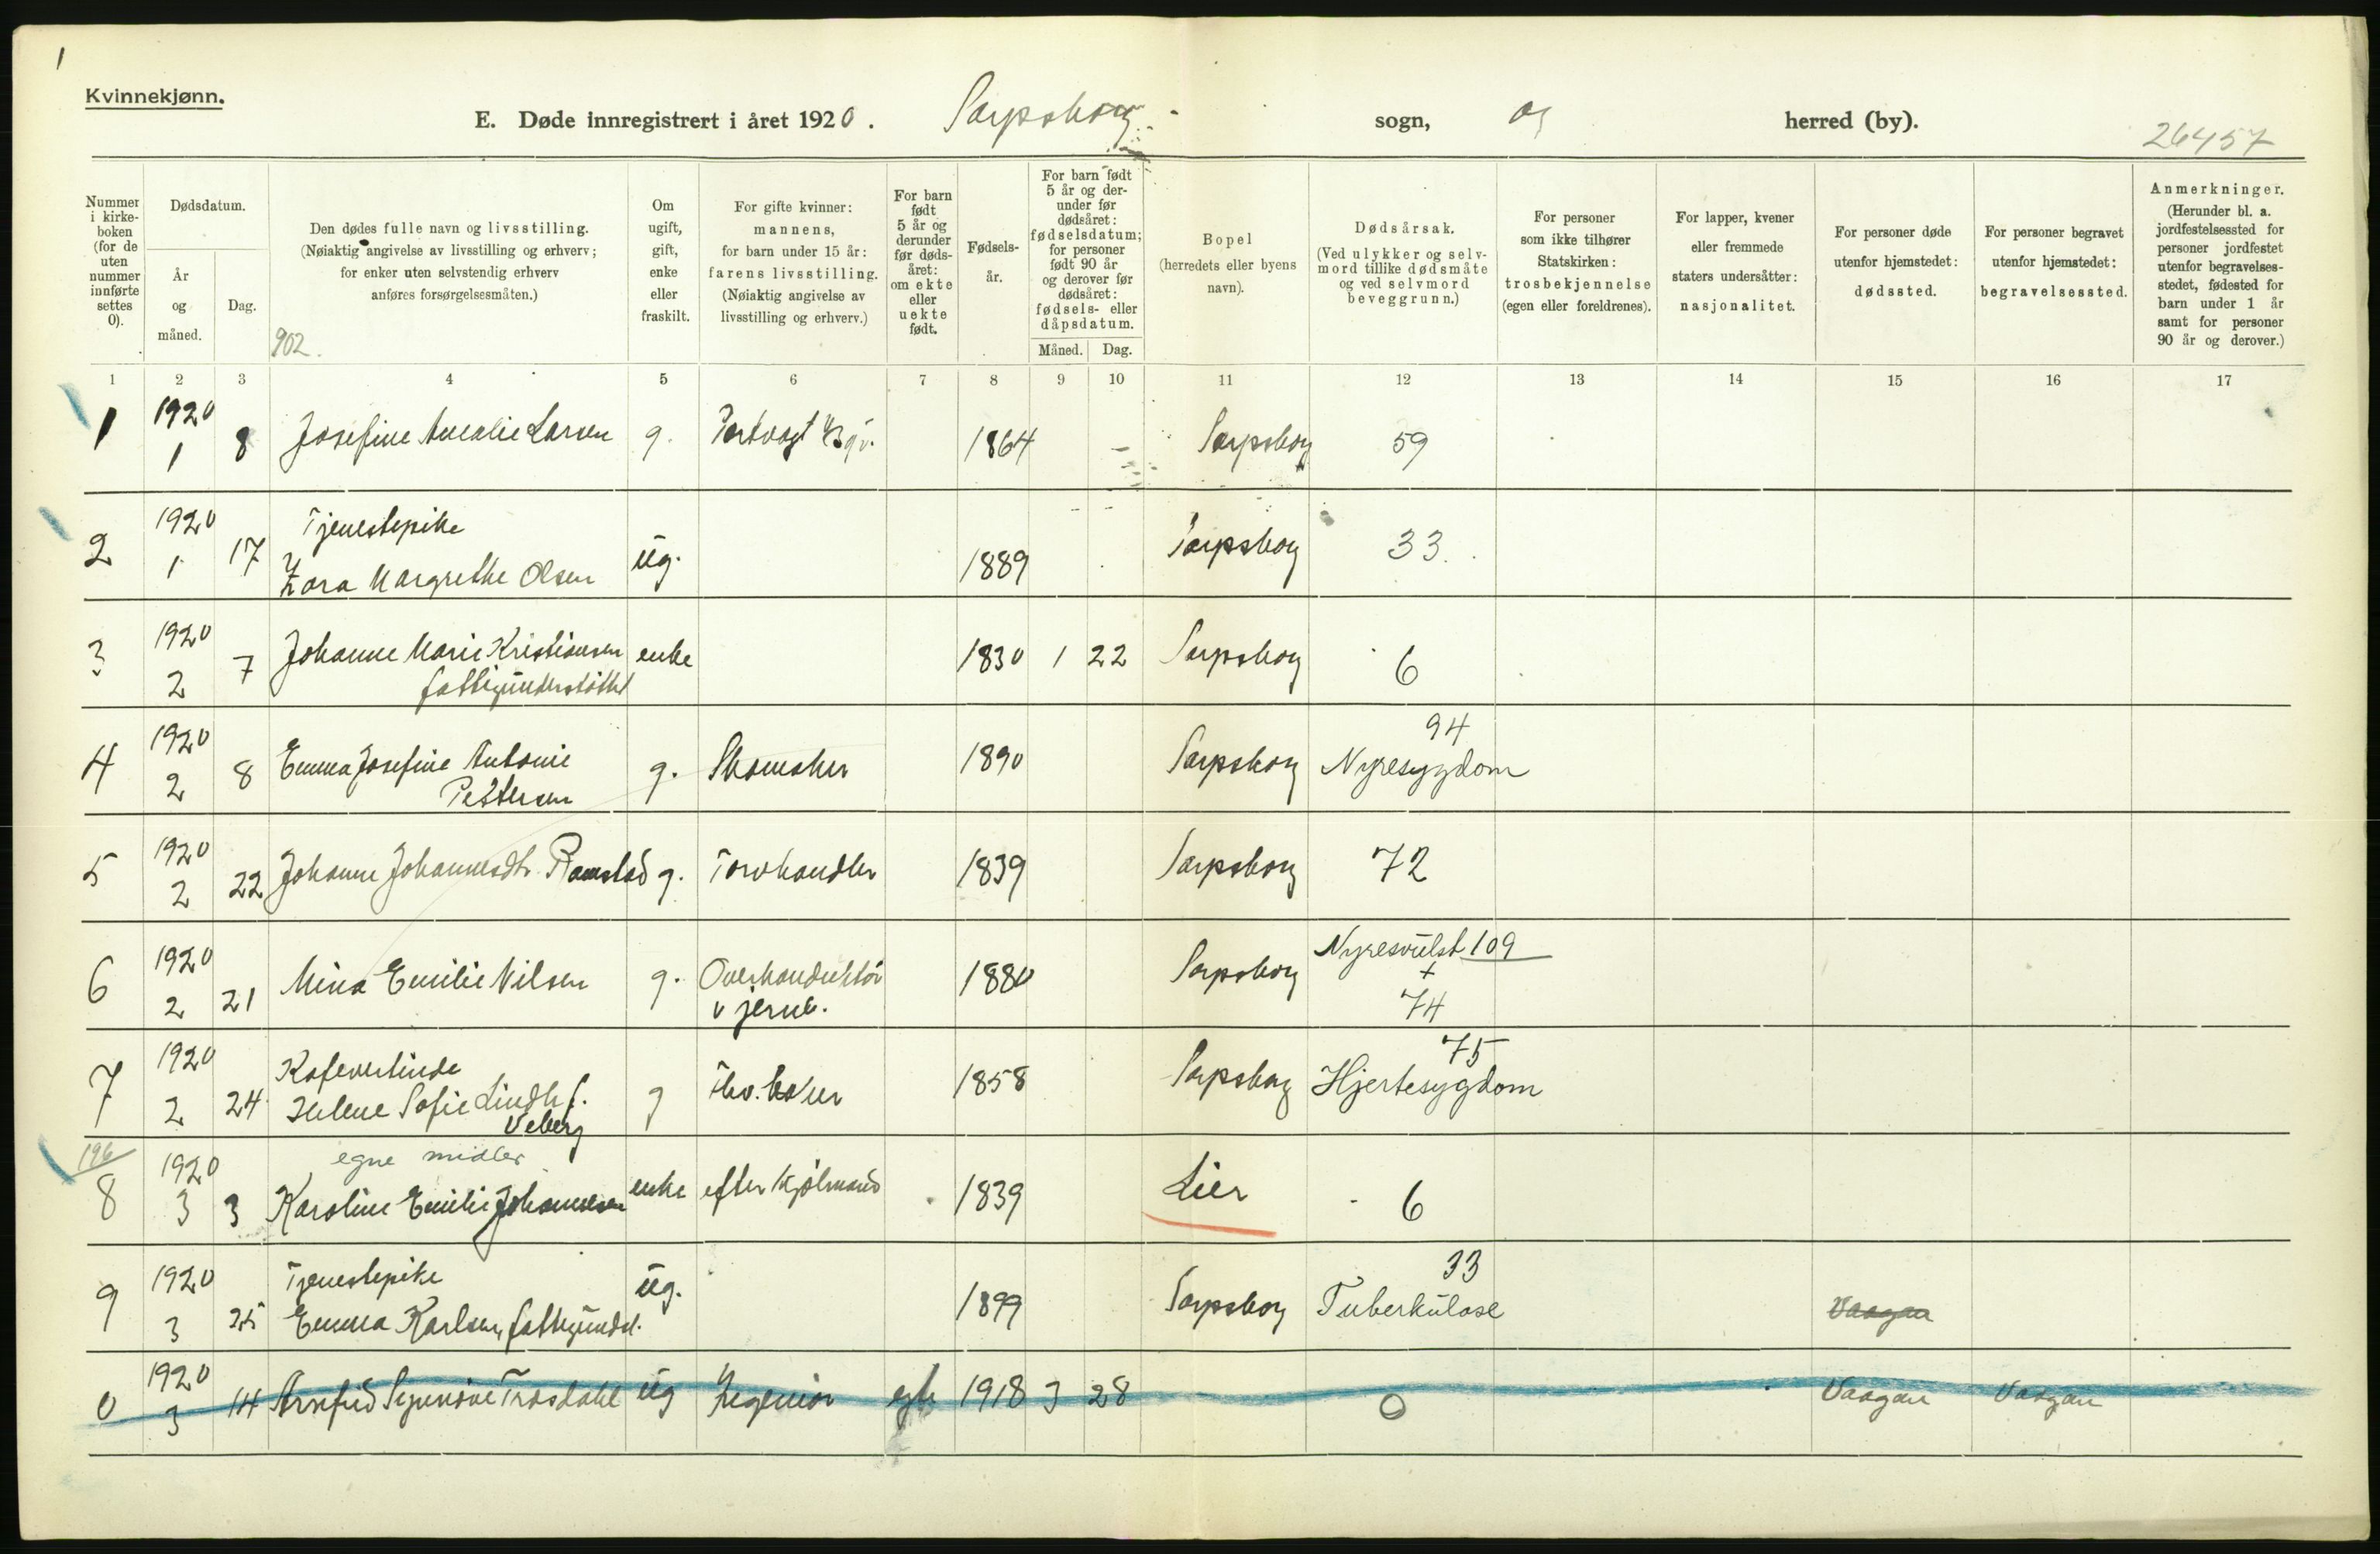 1
Kvinnekjønn.
E. Døde innregistrert i året 1920. Sarpsborg sogn, og herred (by).
26457
Nummer i kirkeboken (for de uten nummer innførte settes 0).
Dødsdatum.
År og måned.
Dag.
Den dødes fulle navn og livsstilling.
(Nøiaktig angivelse av livsstilling og erhverv;
for enker uten selvstendig erhverv
anføres forsørgelsesmåten.)
902.
Om ugift, gift, enke eller fraskilt.
For gifte kvinner: mannens, for barn under 15 år: farens livsstilling. (Nøiaktig angivelse av livsstilling og erhverv.)
For barn født 5 år og derunder før dødsåret: om ekte eller uekte født.
Fødselsår.
For barn født 5 år og derunder før dødsåret: fødselsdatum; for personer født 90 år og derover før dødsåret: fødsels- eller dåpsdatum.
Måned. Dag.
Bopel (herredets eller byens navn).
Dødsårsak. (Ved ulykker og selvmord tillike dødsmåte og ved selvmord beveggrunn.)
For personer som ikke tilhører Statskirken: trosbekjennelse (egen eller foreldrenes).
For lapper, kvener eller fremmede staters undersåtter: nasjonalitet.
For personer døde utenfor hjemstedet: dødssted.
For personer begravet utenfor hjemstedet: begravelsessted.
Anmerkninger. (Herunder bl. a. jordfestelsessted for personer jordfestet utenfor begravelsesstedet, fødested for barn under 1 år samt for personer 90 år og derover.)
1 2 3 4 5 6 7 8 9 10 11 12 13 14 15 16 17
1 1920 1 8 Josefine Amalie Larsen g. Portvagt 1864 Sarpsborg 59
2 1920 1 17 Tjenestepike
Zara Margrethe Olsen ug. 1889 Sarpsborg 33.
3 1920 2 7 Johanne Marie Kristiansen enke 1830 1 22 Sarpsborg 6
fattigunderstøttet
4 1920 2 8 Emma Josefine Antonie
Pettersen g. Skomaker 1890 Sarpsborg 94
Nyresygdom
5 1920 2 22 Johanne Johannesdtr. Ramstad g. Torvhandler 1839 Sarpsborg 72
6 1920 2 21 Mina Emilie Nilsen g. Overkonduktør
v jernb. 1880 Sarpsborg Nyresvulst 109
+
74
7 1920 2 24 Kafevertinde
Helene Sofie Lindh f.
Veberg g 1858 Sarpsborg 75
Hjertesygdom
196
8 1920 3 3 egne midler
Karoline Emilie Johannesen enke efter Kjølmand 1839 Lier 6
9 1920 3 25 Tjenestepike
Emma Karlsen, fattigunderst. ug. 1899 Sarpsborg 33
Tuberkulose Vaagan
0 1920 3 14 Arnfrid Synnøve Trosdahl ug Ingeniør egte 1918 3 28 0 Vaagan Vaagan